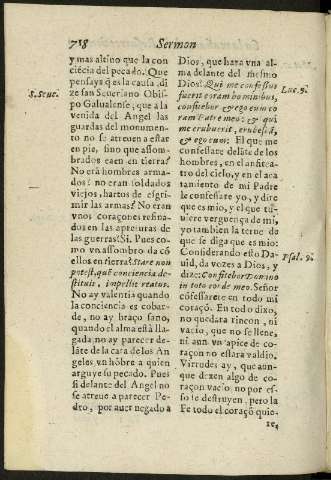 718
Sermon
y mas altino que la con
ciẽcia del pecado. Que
pensays q̃ es la causa, di
S. Seue.
ze san Seueriano Obis-
po Galualense, que a la
venida del Angel las
guardas del monumen-
to no se atreuen a estar
en pie, sino que assom-
brados caen en tierra?
No erã hombres arma-
dos? no eran soldados
viejos, hartos de esgri-
mir las armas? No eran
vnos coraçones refina-
dos en las apreturas de
las guerras? Si. Pues co-
mo vn assombro da cõ
ellos en tierra? Stare non
potest, quẽ conciencia de-
stituit, impellit reatus.
No ay valentia quando
la conciencia es cobar-
de, no ay braço sano,
quando el alma està lla-
gada, no ay parecer de-
lãte de la cara de los An
geles vn hõbre a quien
arguye su pecado. Pues
si delante del Angel no
se atreue a parecer Pe-
dro, por auer negado a
Dios, que hara vna al-
ma delante del mesmo
Dios? Qui me confessus
Luc. 9.
fuerit coram hominibus,
confitebor & ego eum co
ram Patre meo: & qui
me erubuerit, erubescã,
& ego eum: El que me
confessare delãte de los
hombres, en el anfitea-
tro del cielo, y en el aca
tamiento de mi Padre
le confessare yo, y dire
que es mio, y el que tu-
uiere verguença de mi,
yo tambien la terne de
que se diga que es mio:
Considerando esto Da-
Psal. 9.
uid, da vozes a Dios, y
dize: Confitebor Domino
in toto corde meo. Señor
cõfessarete en todo mi
coraçõ. En todo dixo,
no quedara rincon, ni
vazio, que no se llene,
ni aun vn apice de co-
raçon no estara valdio.
Virtudes ay, que aun-
que dexen algo de co-
raçon vazio no por es-
so se destruyen, pero la
Fe todo el coraçõ quie-
re,